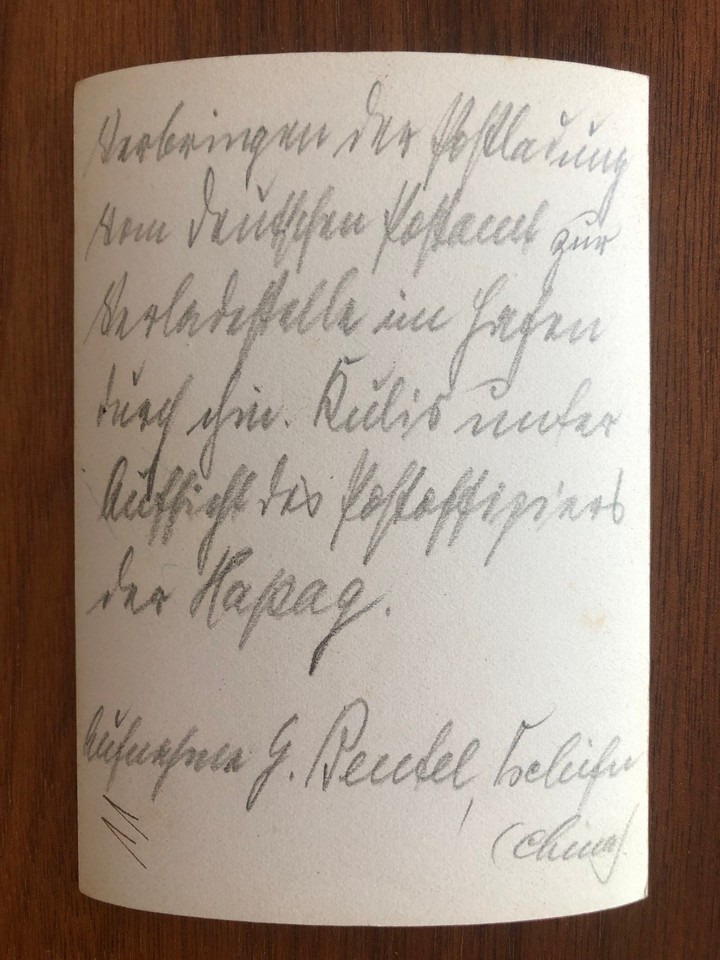 Verbringen der Postladung
vom deutschen Postamt zur
Verladestelle im Hafen
durch chin. Kulis unter
Aufsicht des Postoffiziers
der Hapag.
Aufnahme G. Pentel, Tschifu
(China)
11